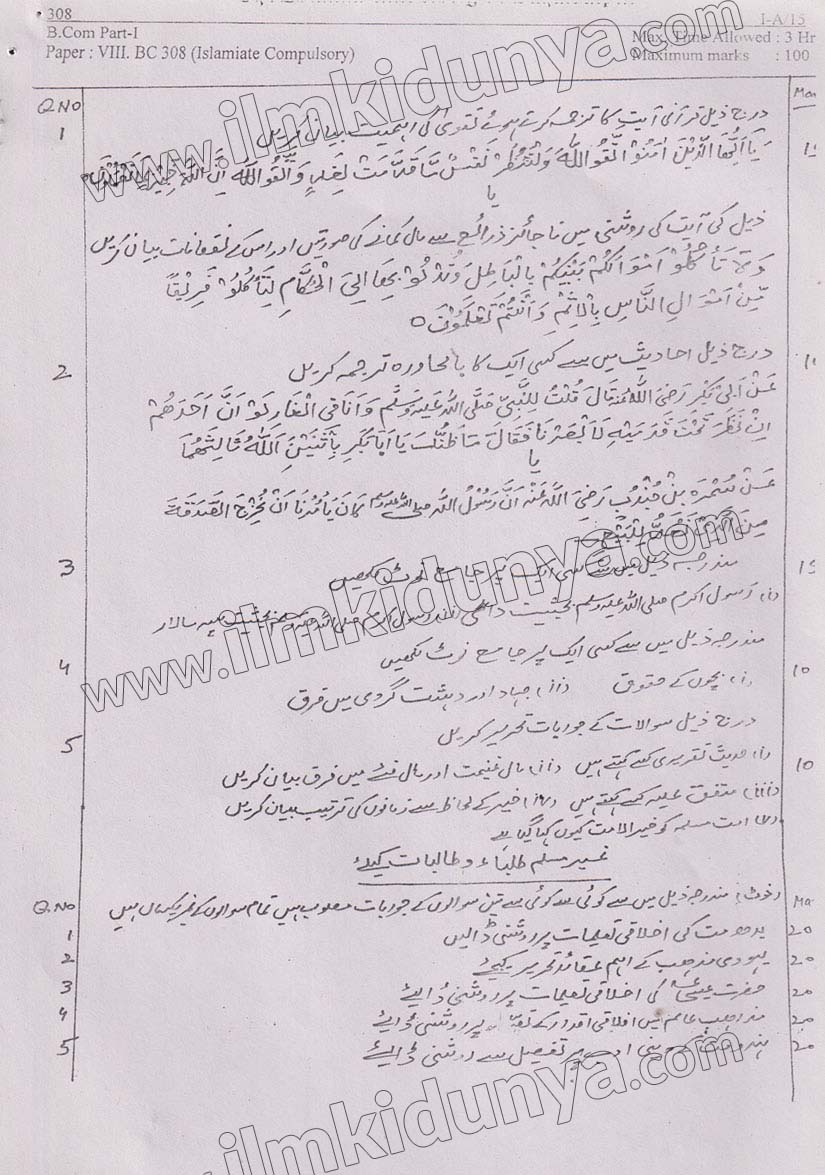 308
I-A/15
B.Com Part-I
Max. Time Allowed : 3 Hr
Paper : VIII. BC 308 (Islamiate Compulsory)
Maximum marks : 100
Q.No
1
درج ذیل قرآنی آیت کا ترجمہ کرتے ہوئے تقویٰ کی اہمیت بیان کریں
یٰاَیُّھَا الَّذِیْنَ اٰمَنُوا اتَّقُوا اللّٰہَ وَلْتَنْظُرْ نَفْسٌ مَّا قَدَّمَتْ لِغَدٍ وَّاتَّقُوا اللّٰہَ اِنَّ اللّٰہَ
یا
ذیل کی آیت کی روشنی میں ناجائز ذرائع سے مال کمانے کی صورتیں اور اس کے نقصانات بیان کریں
وَلَا تَأْكُلُوْا اَمْوَالَكُمْ بَیْنَكُمْ بِالْبَاطِلِ وَتُدْلُوْا بِھَا اِلَی الْحُكَّامِ لِتَأْكُلُوْا فَرِیْقًا
مِّنْ اَمْوَالِ النَّاسِ بِالْاِثْمِ وَاَنْتُمْ تَعْلَمُوْنَ
2
درج ذیل احادیث میں سے کسی ایک کا بامحاورہ ترجمہ کریں
عَنْ اَبِیْ بَكْرٍ رَضِیَ اللّٰہُ عَنْہُ قَالَ قُلْتُ لِلنَّبِیِّ صَلَّی اللّٰہُ عَلَیْہِ وَسَلَّمَ وَاَنَا فِی الْغَارِ لَوْ اَنَّ اَحَدَھُمْ
اِنْ نَظَرَ تَحْتَ قَدَمَیْہِ لَاَبْصَرَنَا فَقَالَ مَا ظَنُّكَ یَا اَبَا بَكْرٍ بِاثْنَیْنِ اَللّٰہُ ثَالِثُھُمَا
یا
عَنْ سَمُرَہ بِنْ جُنْدُبٍ رَضِیَ اللّٰہُ عَنْہُ اَنَّ رَسُوْلَ اللّٰہِ صلی اللہ علیہ وسلم كَانَ یَأْمُرُنَا اَنْ نُخْرِجَ الصَّدَقَةَ
مِنَ الَّذِیْ نُعِدُّ لِلْبَیْعِ
3
مندرجہ ذیل میں سے کسی ایک پر جامع نوٹ لکھیں
(i) رسول اکرم صلی اللہ علیہ وسلم بحیثیت داعی (ii) رسول اکرم صلی اللہ علیہ وسلم بحیثیت سپہ سالار
4
مندرجہ ذیل میں سے کسی ایک پر جامع نوٹ لکھیں
10
(i) بچوں کے حقوق (ii) جہاد اور دہشت گردی میں فرق
5
درج ذیل سوالات کے جوابات تحریر کریں
10
(i) حدیث تقریری کسے کہتے ہیں (ii) مال غنیمت اور مال فئے میں فرق بیان کریں
(iii) متفق علیہ کسے کہتے ہیں (iv) خیر کے لحاظ سے زمانوں کی ترتیب بیان کریں
(v) امت مسلمہ کو خیر الامت کیوں کہا گیا ہے
غیر مسلم طلباء و طالبات کیلئے
Q.No
نوٹ: مندرجہ ذیل میں سے کوئی سے تین سوالوں کے جوابات مطلوب ہیں تمام سوالوں کے نمبر یکساں ہیں
1
بدھ مت کی اخلاقی تعلیمات پر روشنی ڈالیں
20
2
یہودی مذہب کے اہم عقائد تحریر کیجئے
20
3
حضرت عیسیٰؑ کی اخلاقی تعلیمات پر روشنی ڈالیئے
20
4
مذاہب عالم میں اخلاقی اقدار کے پر روشنی ڈالیئے
20
5
پر تفصیل سے روشنی ڈالیئے
20
www.ilmkidunya.com
www.ilmkidunya.com
www.ilmkidunya.com
www.ilmkidunya.com